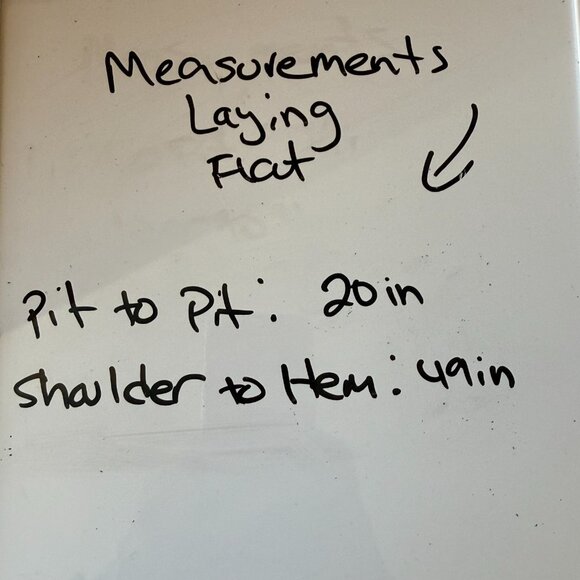 Measurements
Laying
Flat
Pit to Pit: 20in
Shoulder to Hem: 49in